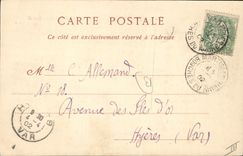 CARTE POSTALE
Ce côté est exclusivement réservé à l'adresse
Mlle C. Allemand
No 18.
Avenue des Iles d'or
Hyères (Var)
B
VAR